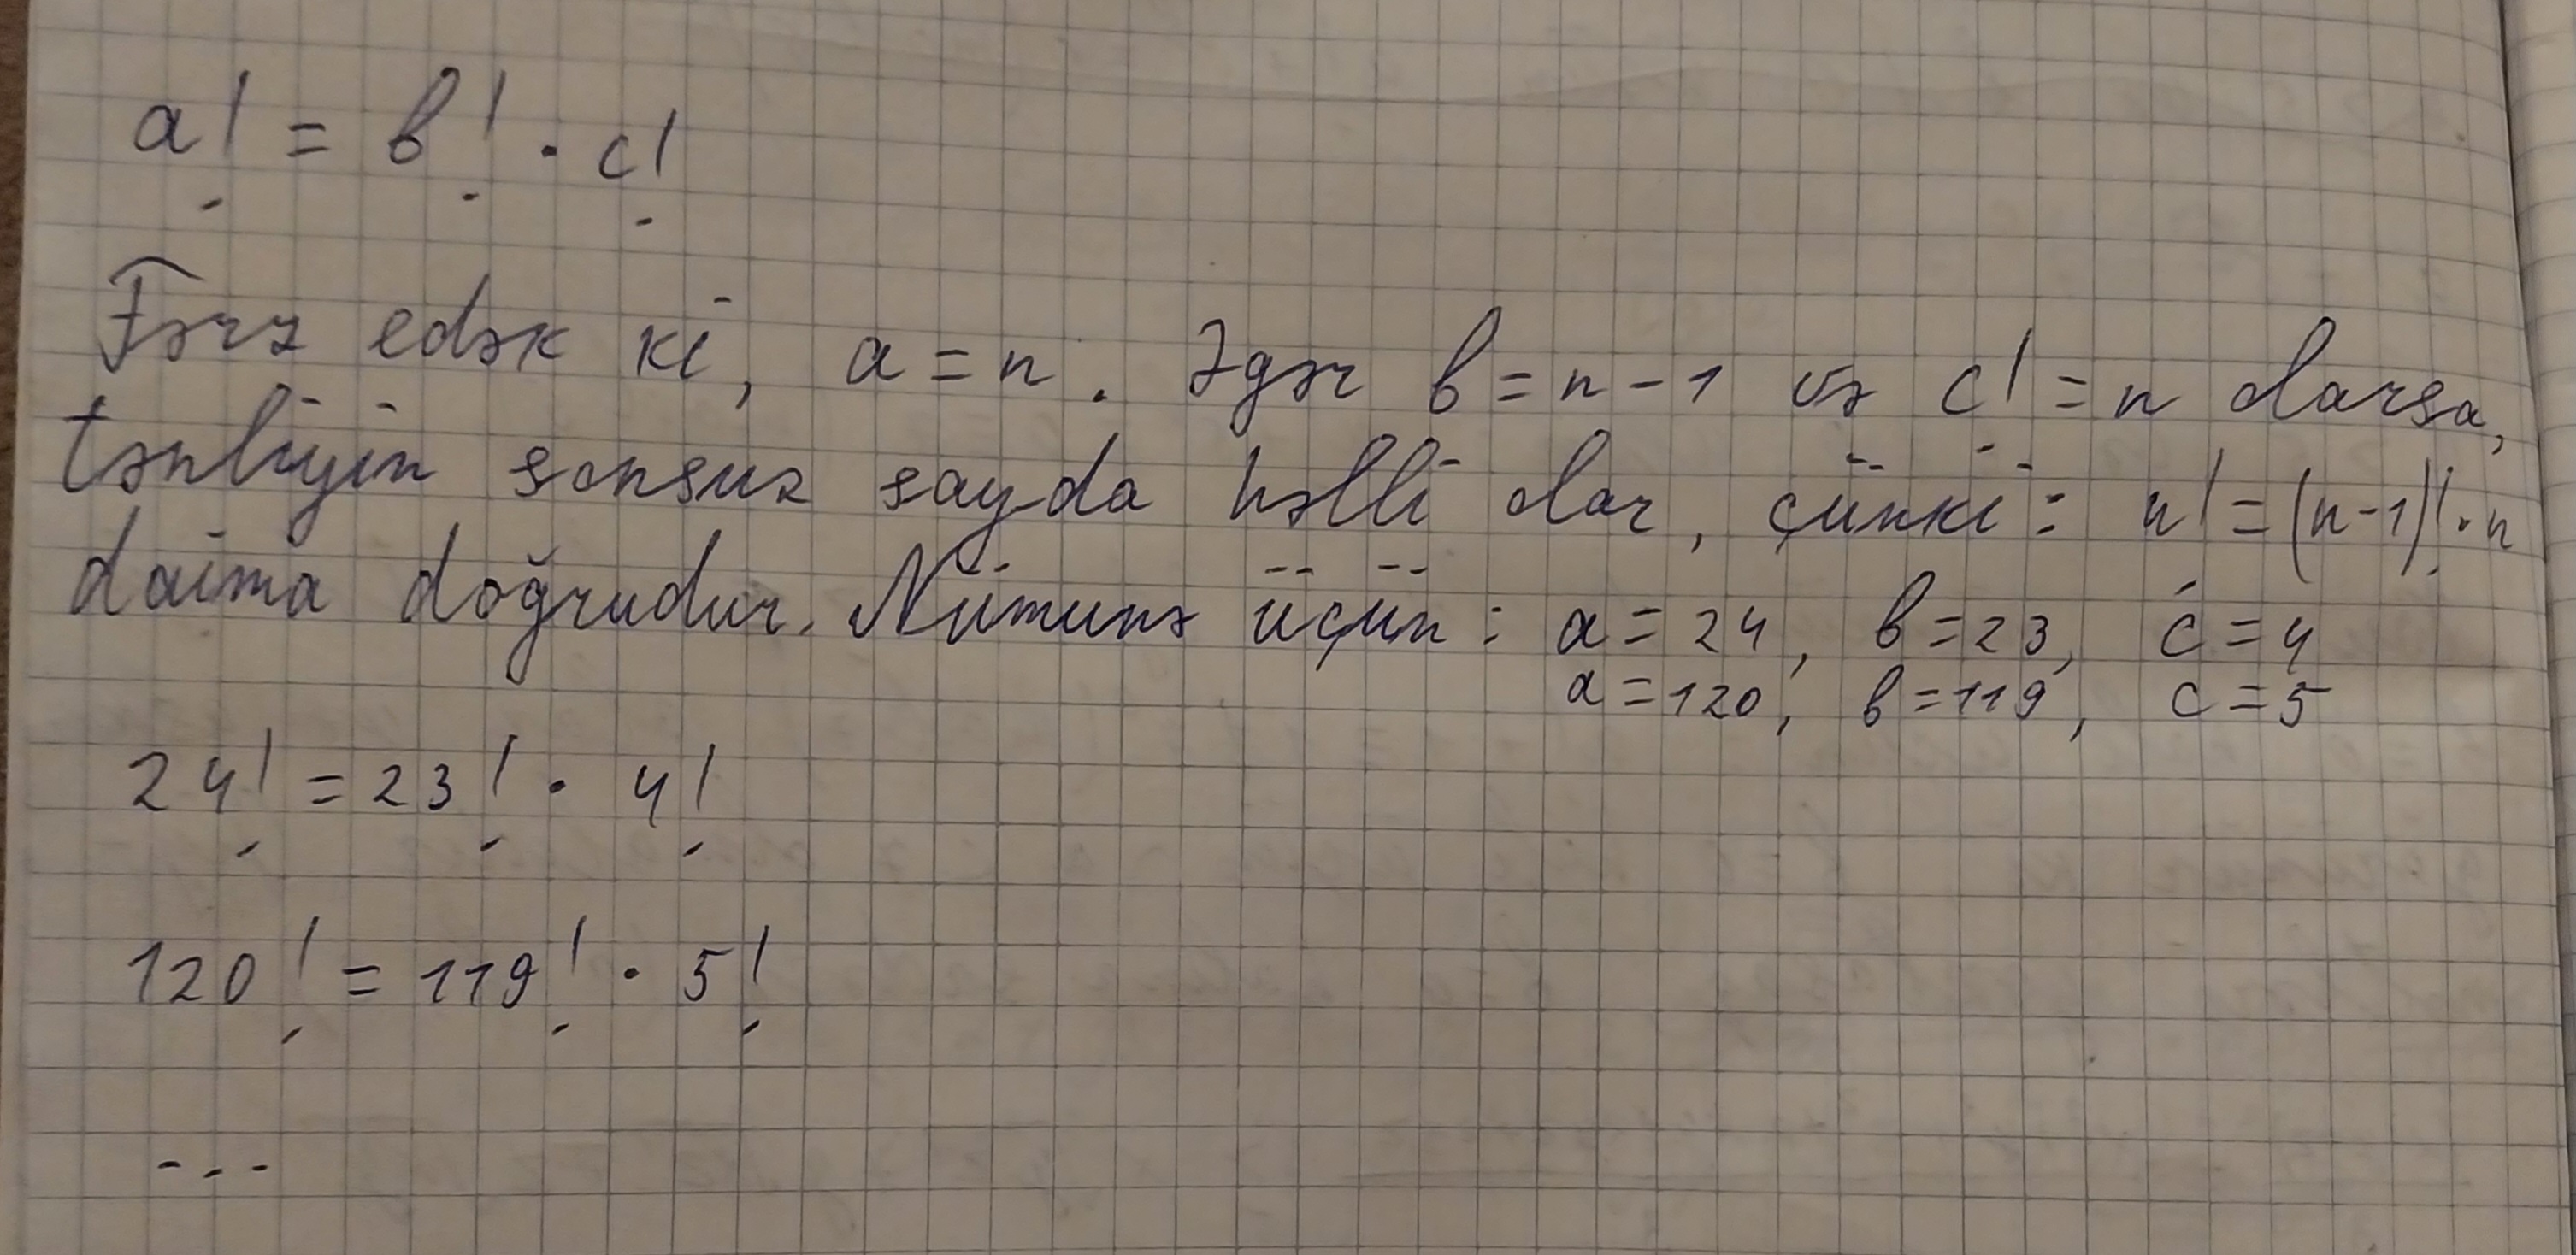 a! = b! · c!
Fərz edək ki, a = n. Əgər b = n - 1 və c! = n olarsa,
tənliyin sonsuz sayda həlli olar, çünki: n! = (n-1)! · n
daima doğrudur. Nümunə üçün: a = 24, b = 23, c = 4
a = 120, b = 119, c = 5
24! = 23! · 4!
120! = 119! · 5!
...